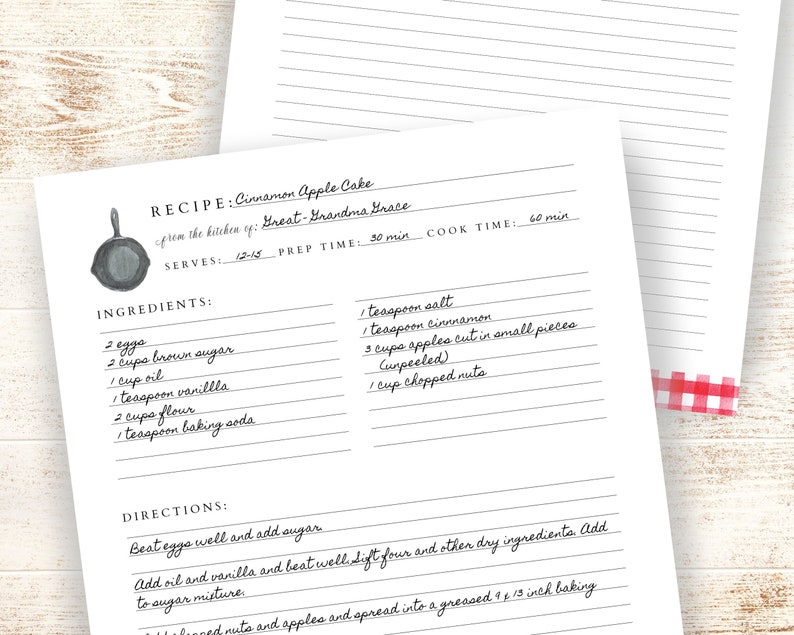 RECIPE: Cinnamon Apple Cake
from the kitchen of: Great-Grandma Grace
SERVES: 12-15 PREP TIME: 30 min COOK TIME: 60 min
INGREDIENTS:
2 eggs
2 cups brown sugar
1 cup oil
1 teaspoon vanillla
2 cups flour
1 teaspoon baking soda
1 teaspoon salt
1 teaspoon cinnnamon
3 cups apples cut in small pieces
(unpeeled)
1 cup chopped nuts
DIRECTIONS:
Beat eggs well and add sugar.
Add oil and vanilla and beat well. Sift four and other dry ingredients. Add
to sugar mixture.
chopped nuts and apples and spread into a greased 9 x 13 inch baking